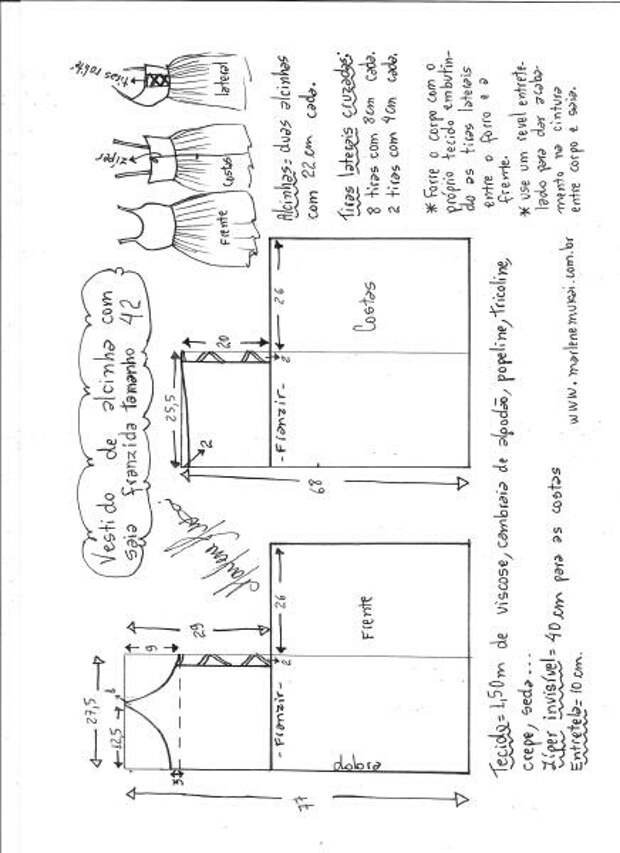 Vestido de alcinha com
saia franzida tamanho 42
Marlene Mukai
frente
costas
zíper
lateral
tiras rolitê
Alcinhas = duas alcinhas
com 22 cm cada.
Tiras laterais cruzadas:
8 tiras com 8cm cada.
2 tiras com 4cm cada.
* Forre o corpo com o
próprio tecido embutin-
do as tiras laterais
entre o forro e a
frente.
* use um revel entrete-
lado para dar acaba-
mento na cintura
entre corpo e saia.
27,5
12,5
9
29
3
2
26
-Franzir-
Frente
dobra
77
25,5
2
20
2
26
-Franzir-
Costas
68
Tecido = 1,50m de viscose, cambraia de algodão, popeline, tricoline,
crepe, seda...
Zíper invisível = 40 cm para as costas
Entretela = 10 cm.
www.marlenemukai.com.br